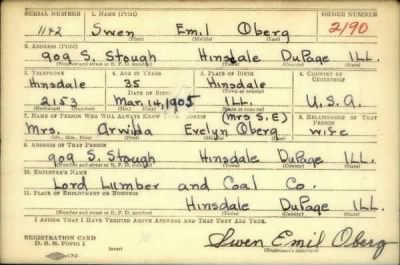 SERIAL NUMBER 1. NAME (Print) ORDER NUMBER
1142 Swen Emil Oberg 2190
(First) (Middle) (Last)
2. ADDRESS (Print)
909 S. Stough Hinsdale DuPage ILL.
(Number and street or R. F. D. number) (Town) (County) (State)
3. TELEPHONE 4. AGE IN YEARS 5. PLACE OF BIRTH 6. COUNTRY OF CITIZENSHIP
Hinsdale 35 Hinsdale
DATE OF BIRTH (Town or county)
2153 Mar. 14, 1905 ILL. U.S.A.
7. NAME OF PERSON WHO WILL ALWAYS KNOW YOUR ADDRESS (Mrs S.E) 8. RELATIONSHIP OF THAT PERSON
Mrs. Arwida Evelyn Oberg wife
(Mr., Mrs., Miss) (First) (Middle) (Last)
9. ADDRESS OF THAT PERSON
909 S. Stough Hinsdale DuPage ILL.
(Number and street or R. F. D. number) (Town) (County) (State)
10. EMPLOYER'S NAME
Lord Lumber and Coal Co.
11. PLACE OF EMPLOYMENT OR BUSINESS
Hinsdale DuPage ILL.
(Number and street or R. F. D. number) (Town) (County) (State)
I AFFIRM THAT I HAVE VERIFIED ABOVE ANSWERS AND THAT THEY ARE TRUE.
REGISTRATION CARD
D. S. S. Form 1 (over) Swen Emil Oberg
(Registrant's signature)